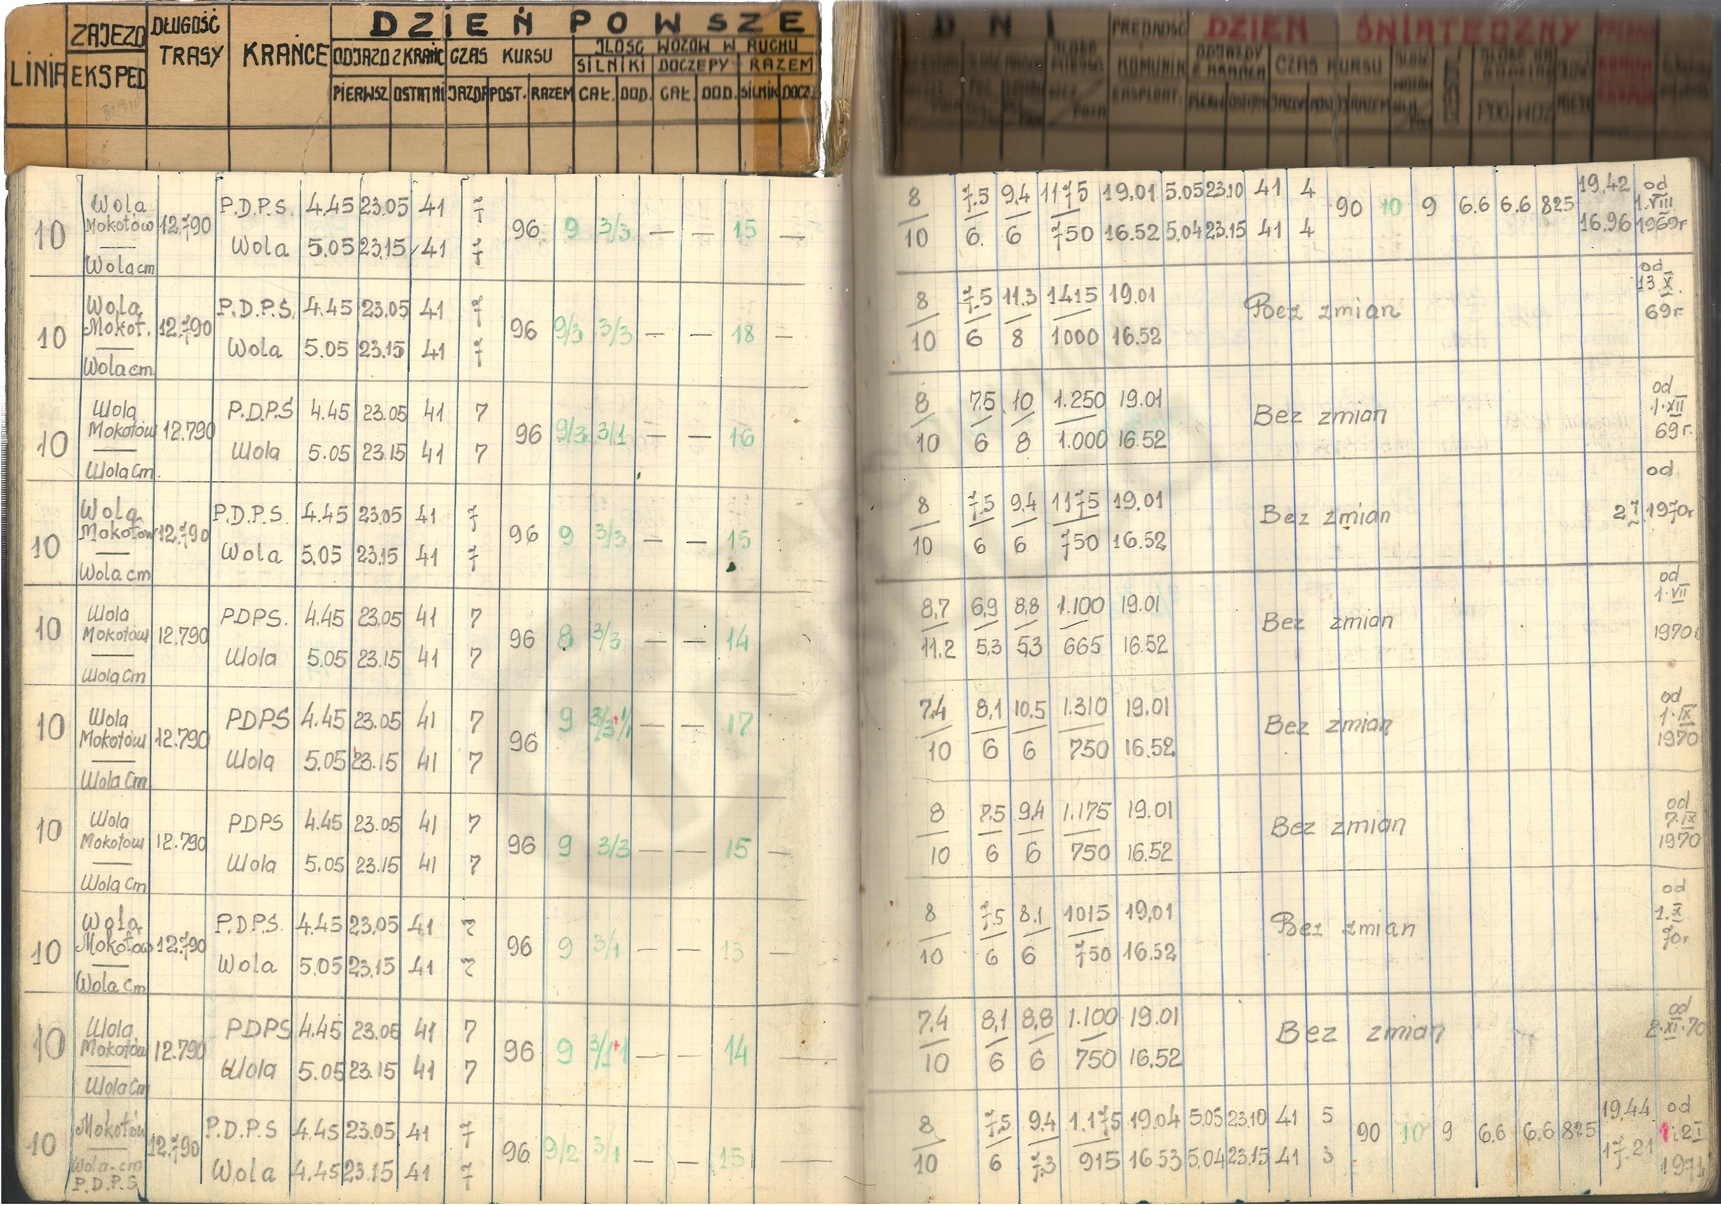 DZIEŃ POWSZE
LINIA ZAJEZD EKSPED DŁUGOŚĆ TRASY KRAŃCE ODJAZD Z KRAŃC CZAS KURSU ILOŚĆ WOZÓW W RUCHU
SILNIKI DOCZEPY RAZEM
PIERWSZ OSTATNI JAZDA POST. RAZEM CAŁ. DOD. CAŁ. DOD. SILNIK DOCZ.
DNI PRĘDNOŚĆ KOMUNIK EKSPLOAT. DZIEŃ ŚWIĄTECZNY
ODJAZDY Z KRAŃCA CZAS KURSU
Wola P.D.P.S. 4.45 23.05 41 7 8 7.5 9.4 1175 19.01 5.05 23.10 41 4 19.42 od
10 Mokotów 12.790 96 9 3/3 — — 15 — 90 10 9 6.6 6.6 825 1.VIII
Wola cm Wola 5.05 23.15 41 7 10 6. 6 750 16.52 5.04 23.15 41 4 16.96 1969r
Wola P.D.P.S. 4.45 23.05 41 7 8 7.5 11.3 1415 19.01 od 13.X.
10 Mokot. 12.790 96 9/3 3/3 — — 18 — Bez zmian 69r
Wola cm Wola 5.05 23.15 41 7 10 6 8 1000 16.52
Wola P.D.P.S 4.45 23.05 41 7 8 7.5 10 1.250 19.01 od
10 Mokotów 12.790 96 9/3 3/1 — — 16 Bez zmian 1.XII
Wola Cm. Wola 5.05 23.15 41 7 10 6 8 1.000 16.52 69r.
Wola P.D.P.S. 4.45 23.05 41 7 8 7.5 9.4 1175 19.01 od
10 Mokotów 12.790 96 9 3/3 — — 15 Bez zmian 2.I.1970r
Wola cm Wola 5.05 23.15 41 7 10 6 6 750 16.52
Wola PDPS. 4.45 23.05 41 7 8,7 6,9 8,8 1.100 19.01 od
10 Mokotów 12.790 96 8 3/3 — — 14 Bez zmian 1.VII
Wola Cm Wola 5.05 23.15 41 7 11.2 5,3 5,3 665 16.52 1970
Wola PDPS 4.45 23.05 41 7 7,4 8,1 10.5 1.310 19.01 od
10 Mokotów 12.790 96 9 3/3+1/1 — — 17 Bez zmian 1.IX
Wola Cm Wola 5.05 23.15 41 7 10 6 6 750 16.52 1970
Wola PDPS 4.45 23.05 41 7 8 7.5 9,4 1.175 19.01 od
10 Mokotów 12.790 96 9 3/3 — — 15 — Bez zmian 7.IX
Wola Cm Wola 5.05 23.15 41 7 10 6 6 750 16.52 1970
Wola P.D.P.S. 4.45 23.05 41 7 8 7.5 8.1 1015 19,01 od
10 Mokotów 12.790 96 9 3/1 — — 13 — Bez zmian 1.X
Wola Cm Wola 5.05 23.15 41 7 10 6 6 750 16.52 70r
Wola PDPS 4.45 23.05 41 7 7,4 8,1 8,8 1.100 19.01 od
10 Mokotów 12.790 96 9 3/1+1 — — 14 — Bez zmian 2.XI.70
Wola Cm Wola 5.05 23.15 41 7 10 6 6 750 16,52
Mokotów P.D.P.S 4.45 23.05 41 7 8 7.5 9.4 1.175 19.04 5.05 23.10 41 5 19.44 od
10 12.790 96 9/2 3/1 — — 15 90 10 9 6.6 6.6 825
Wola-cm P.D.P.S Wola 4.45 23.15 41 7 10 6 7.3 915 16.53 5.04 23.15 41 3 17.21